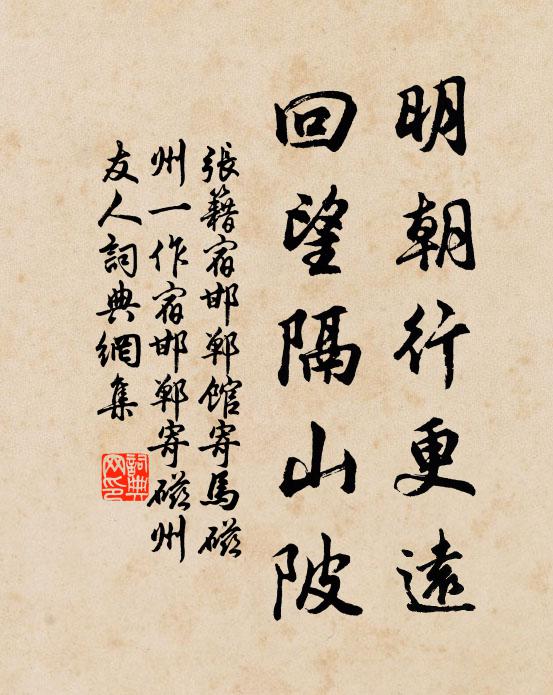 明朝行更遠
回望隔山陂
張籍宿邯鄲館寄馬磁
州一作宿邯鄲寄磁州
友人詞典網集
詞典網印